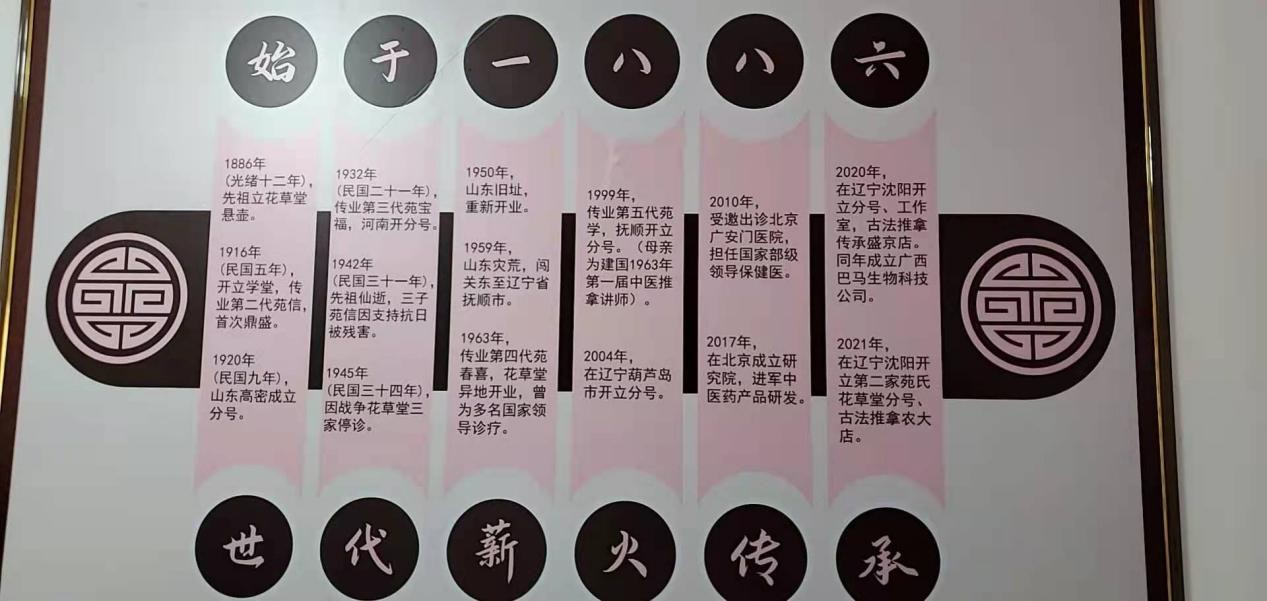 始于一八八六
1886年
(光绪十二年),
先祖立花草堂
悬壶。
1916年
(民国五年),
开立学堂，传
业第二代苑信,
首次鼎盛。
1920年
(民国九年),
山东高密成立
分号。
1932年
(民国二十一年),
传业第三代苑宝
福，河南开分号。
1942年
(民国三十一年),
先祖仙逝，三子
苑信因支持抗日
被残害。
1945年
(民国三十四年),
因战争花草堂三
家停诊。
1950年,
山东旧址,
重新开业。
1959年,
山东灾荒，闯
关东至辽宁省
抚顺市。
1963年,
传业第四代苑
春喜，花草堂
异地开业，曾
为多名国家领
导诊疗。
1999年,
传业第五代苑
学，抚顺开立
分号。（母亲
为建国1963年
第一届中医推
拿讲师）。
2004年,
在辽宁葫芦岛
市开立分号。
2010年,
受邀出诊北京
广安门医院,
担任国家部级
领导保健医。
2017年,
在北京成立研
究院，进军中
医药产品研发。
2020年,
在辽宁沈阳开
立分号、工作
室，古法推拿
传承盛京店。
同年成立广西
巴马生物科技
公司。
2021年,
在辽宁沈阳开
立第二家苑氏
花草堂分号、
古法推拿农大
店。
世代薪火传承